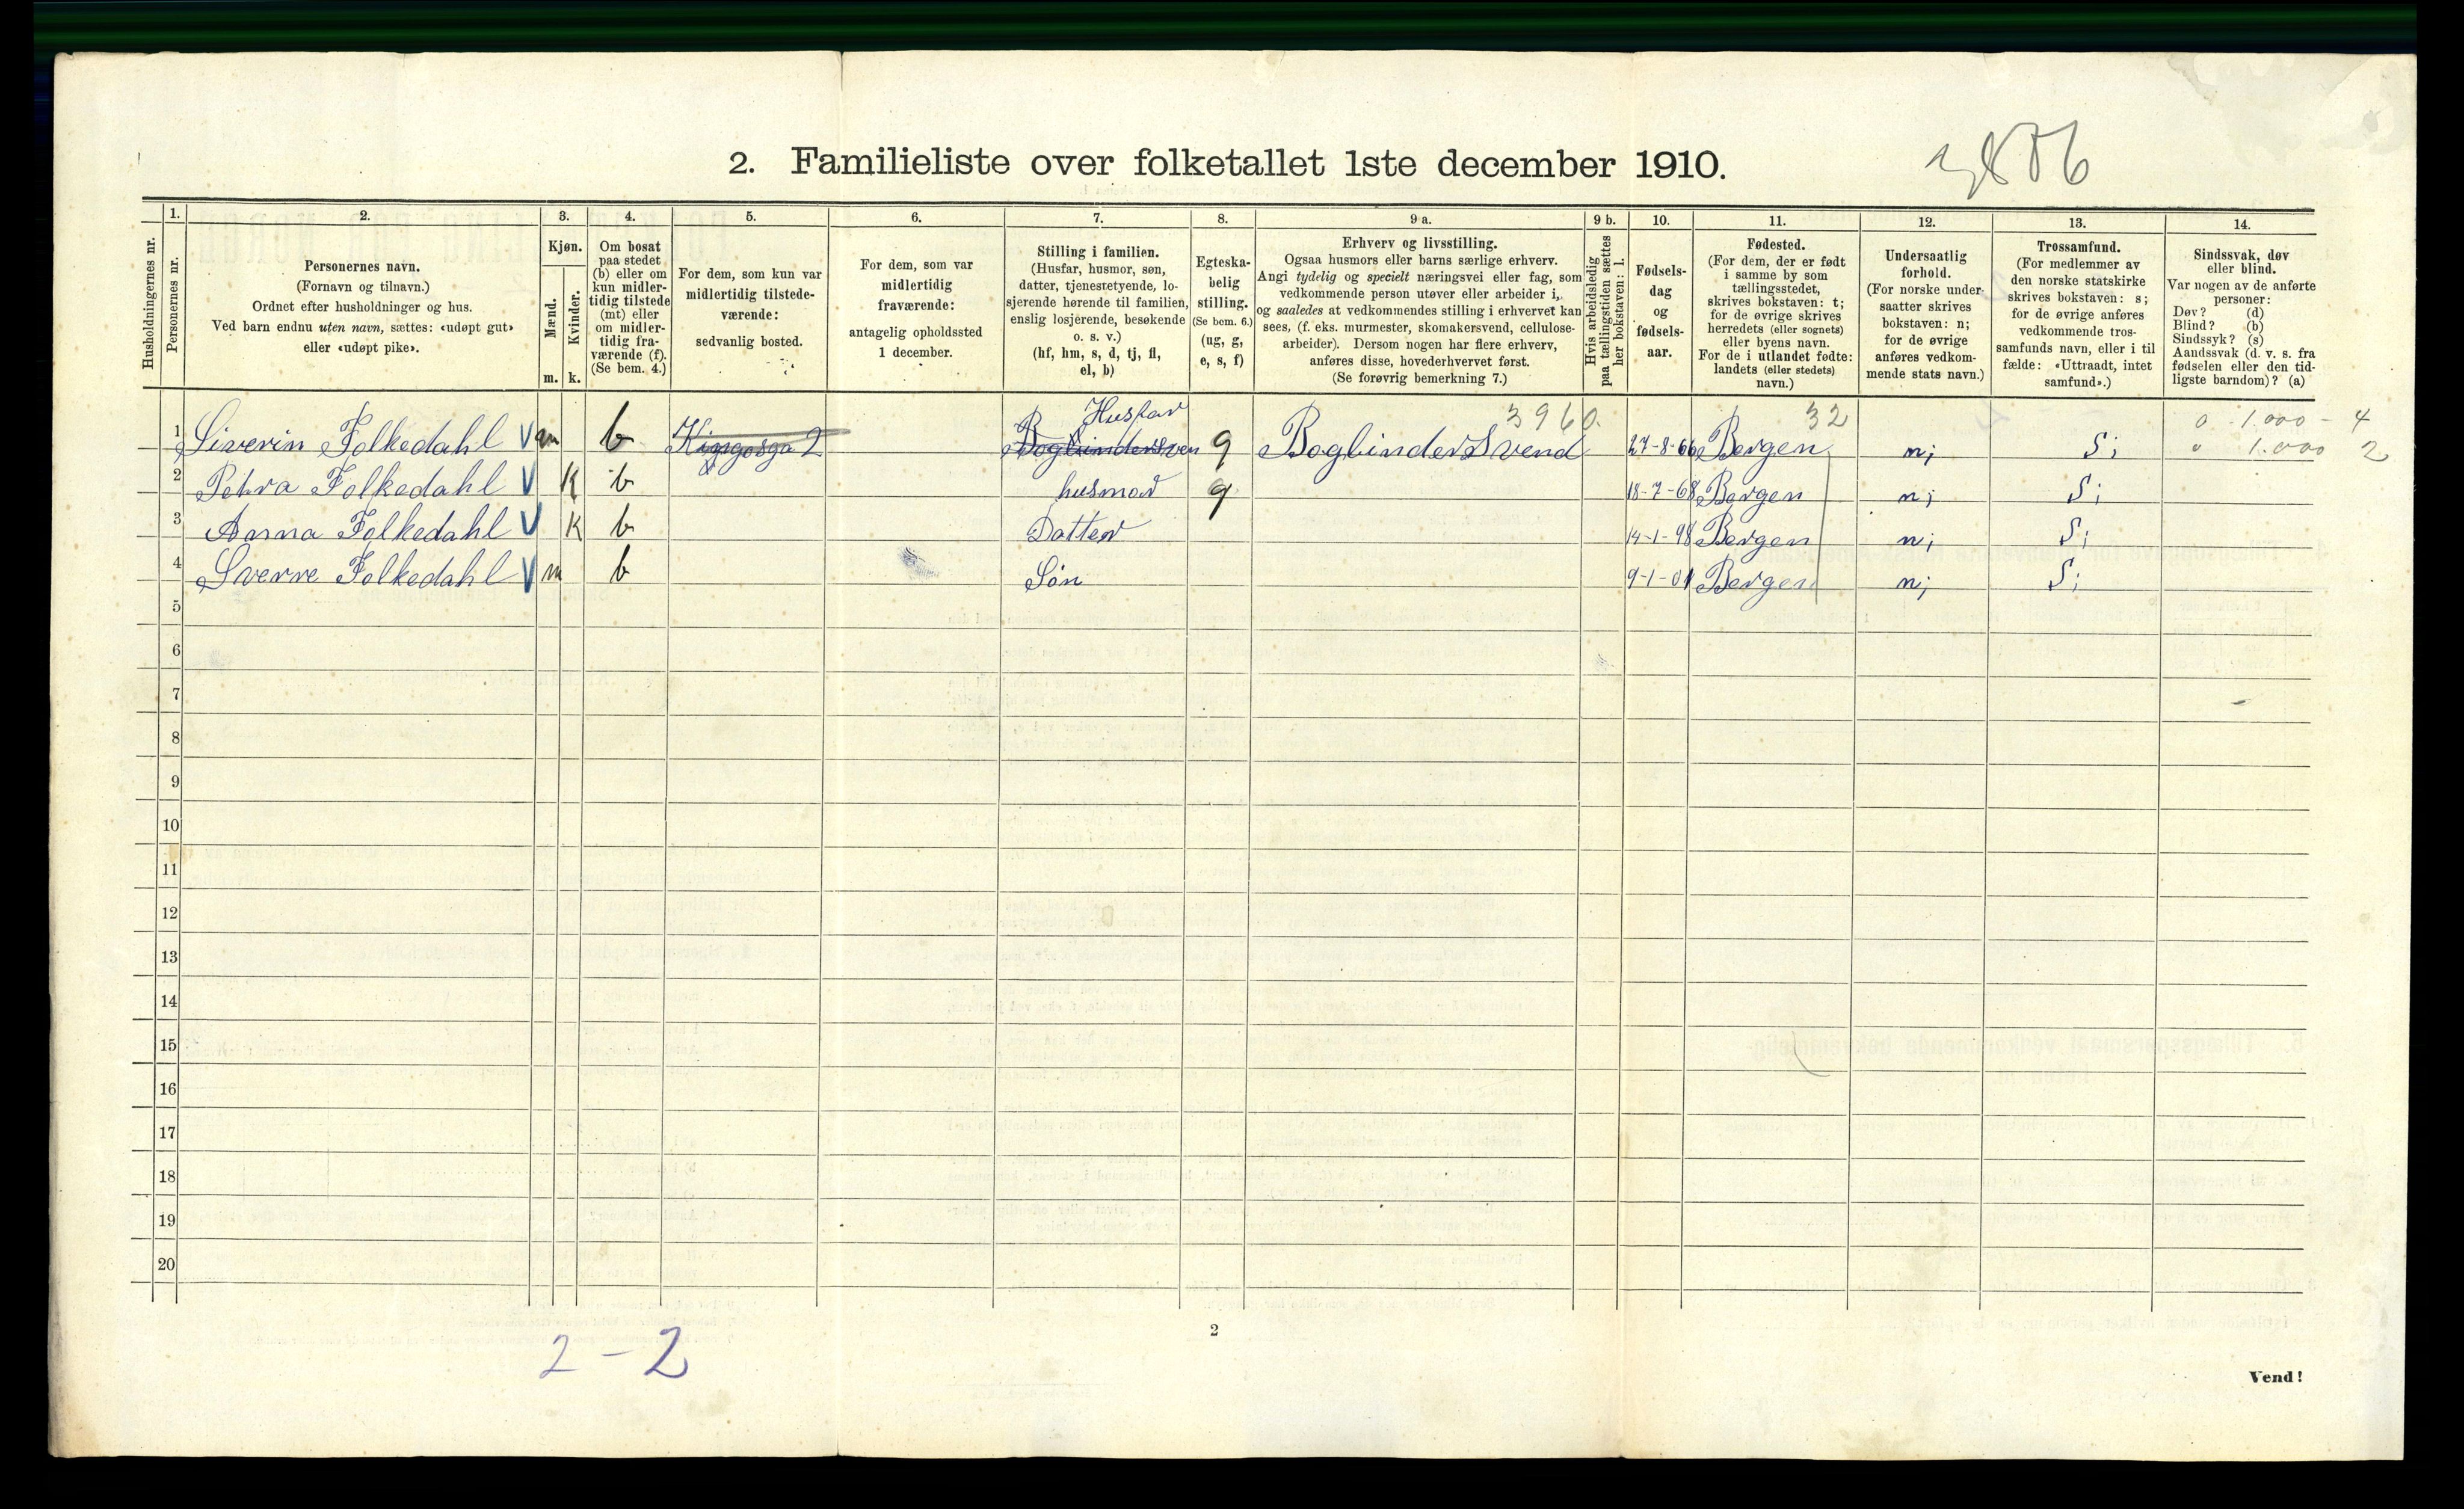 2. Familieliste over folketallet 1ste december 1910.
Husholdningernes nr.
1. Personernes nr.
2. Personernes navn.
(Fornavn og tilnavn.)
Ordnet efter husholdninger og hus.
Ved barn endnu uten navn, sættes: «udøpt gut»
eller «udøpt pike».
3. Kjøn.
Mænd. m.
Kvinder. k.
4. Om bosat
paa stedet
(b) eller om
kun midler-
tidig tilstede
(mt) eller
om midler-
tidig fra-
værende (f).
(Se bem. 4.)
5. For dem, som kun var
midlertidig tilstede-
værende:
sedvanlig bosted.
6. For dem, som var
midlertidig
fraværende:
antagelig opholdssted
1 december.
7. Stilling i familien.
(Husfar, husmor, søn,
datter, tjenestetyende, lo-
sjerende hørende til familien,
enslig losjerende, besøkende
o. s. v.)
(hf, hm, s, d, tj, fl,
el, b)
8. Egteska-
belig
stilling.
(Se bem. 6.)
(ug, g,
e, s, f)
9 a. Erhverv og livsstilling.
Ogsaa husmors eller barns særlige erhverv.
Angi tydelig og specielt næringsvei eller fag, som
vedkommende person utøver eller arbeider i,
og saaledes at vedkommendes stilling i erhvervet kan
sees, (f. eks. murmester, skomakersvend, cellulose-
arbeider). Dersom nogen har flere erhverv,
anføres disse, hovederhvervet først.
(Se forøvrig bemerkning 7.)
9 b. Hvis arbeidsledig
paa tællingstiden sættes
her bokstaven: l.
10. Fødsels-
dag
og
fødsels-
aar.
11. Fødested.
(For dem, der er født
i samme by som
tællingsstedet,
skrives bokstaven: t;
for de øvrige skrives
herredets (eller sognets)
eller byens navn.
For de i utlandet fødte:
landets (eller stedets)
navn.)
12. Undersaatlig
forhold.
(For norske under-
saatter skrives
bokstaven: n;
for de øvrige
anføres vedkom-
mende stats navn.)
13. Trossamfund.
(For medlemmer av
den norske statskirke
skrives bokstaven: s;
for de øvrige anføres
vedkommende tros-
samfunds navn, eller i til
fælde: «Uttraadt, intet
samfund».)
14. Sindssvak, døv
eller blind.
Var nogen av de anførte
personer:
Døv? (d)
Blind? (b)
Sindssyk? (s)
Aandssvak (d. v. s. fra
fødselen eller den tid-
ligste barndom)? (a)
Husfar 3960. 32 0 1.000 - 4
1 Siverin Folkedahl V m b Kingosga 2 Bogbindersven g BogbinderSvend 27-8-66 Bergen n; S; 0 1.000 2
2 Petra Folkedahl V K b husmor g 18-7-68 Bergen n; S;
3 Anna Folkedahl V K b Datter 14-1-98 Bergen n; S;
4 Sverre Folkedahl V m b Søn 9-1-01 Bergen n; S;
5
6
7
8
9
10
11
12
13
14
15
16
17
18
19
20
2 - 2
2
Vend!